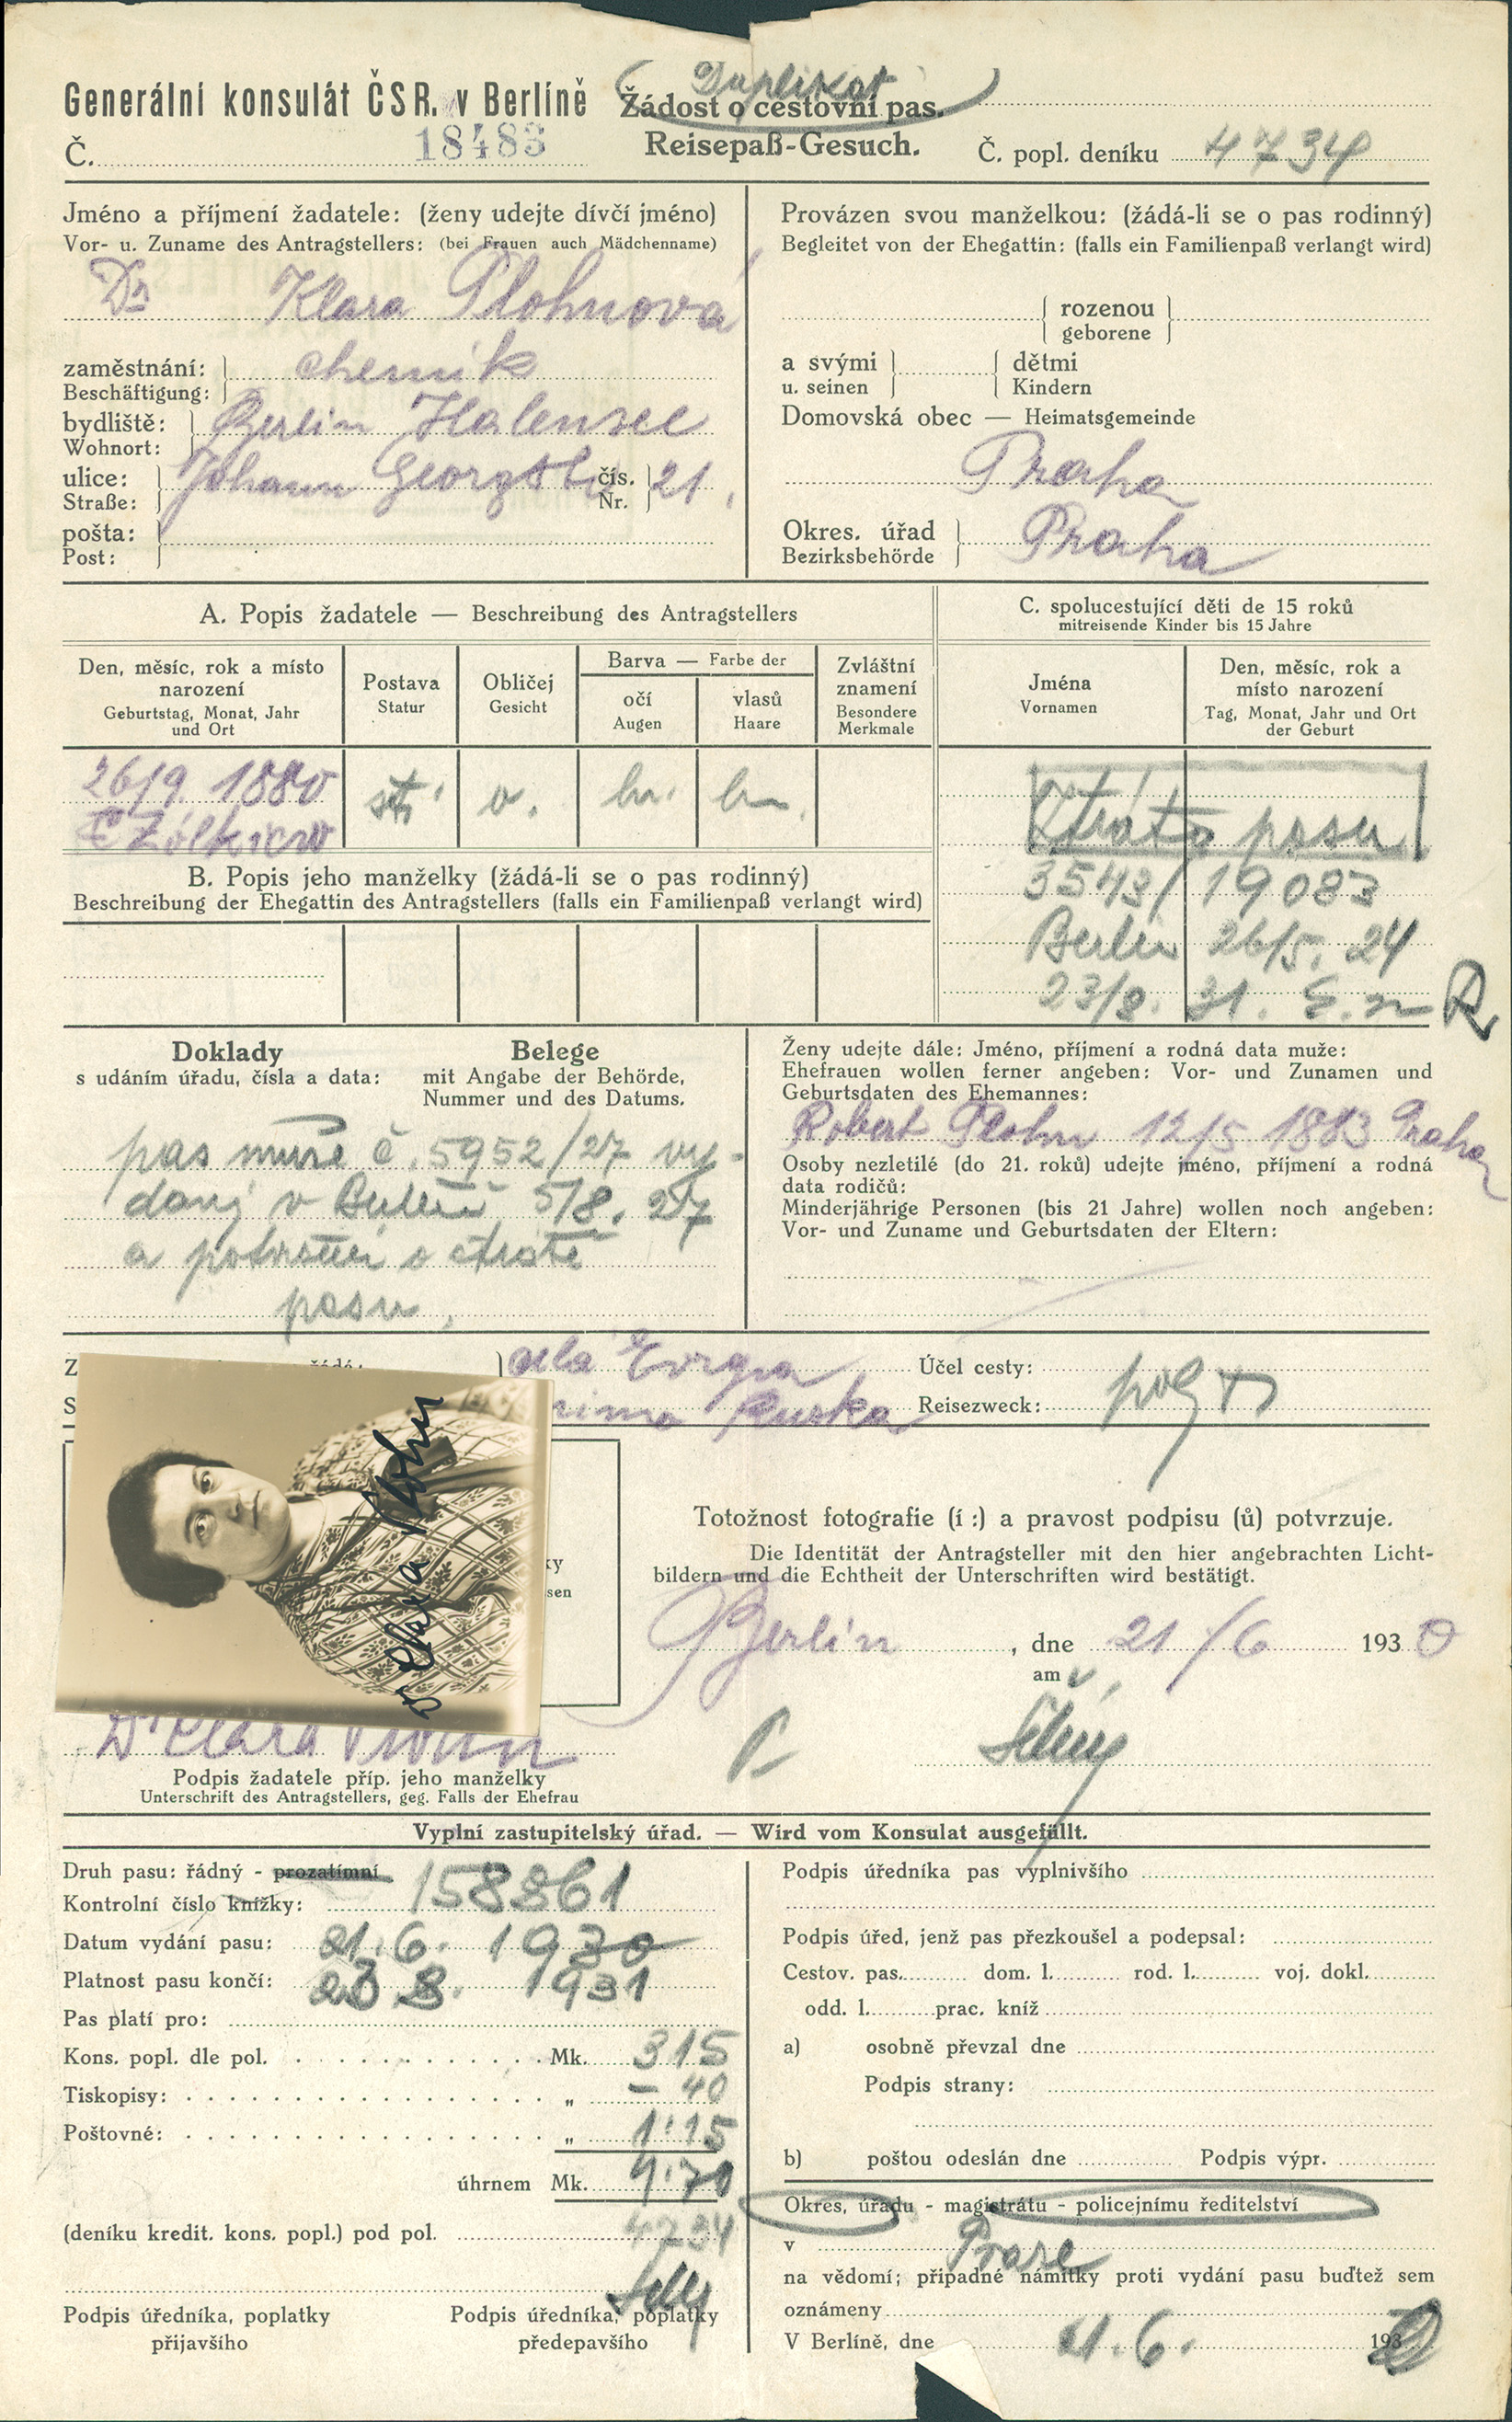 Duplikat
Generální konsulát ČSR. v Berlíně
Žádost o cestovní pas.
Č. 18483
Reisepaß-Gesuch.
Č. popl. deníku 4734
Jméno a příjmení žadatele: (ženy udejte dívčí jméno)
Vor- u. Zuname des Antragstellers: (bei Frauen auch Mädchenname)
Dr Klara Plohnová
zaměstnání: chemik
Beschäftigung:
bydliště: Berlin Halensee
Wohnort:
ulice: Johann Georgstr čís. 21.
Straße: Nr.
pošta:
Post:
Provázen svou manželkou: (žádá-li se o pas rodinný)
Begleitet von der Ehegattin: (falls ein Familienpaß verlangt wird)
rozenou
geborene
a svými dětmi
u. seinen Kindern
Domovská obec — Heimatsgemeinde
Praha
Okres. úřad Praha
Bezirksbehörde
A. Popis žadatele — Beschreibung des Antragstellers
Den, měsíc, rok a místo
narození
Geburtstag, Monat, Jahr
und Ort
Postava
Statur
Obličej
Gesicht
Barva — Farbe der
očí
Augen
vlasů
Haare
Zvláštní
znamení
Besondere
Merkmale
26/9. 1880
Žólkiew
stř.
o.
hn.
hn.
B. Popis jeho manželky (žádá-li se o pas rodinný)
Beschreibung der Ehegattin des Antragstellers (falls ein Familienpaß verlangt wird)
C. spolucestující děti de 15 roků
mitreisende Kinder bis 15 Jahre
Jména
Vornamen
Den, měsíc, rok a
místo narození
Tag, Monat, Jahr und Ort
der Geburt
Ztráta pasu
3543/19083
Berlin 26/5. 24
23/8. 31.
Doklady
s udáním úřadu, čísla a data:
Belege
mit Angabe der Behörde,
Nummer und des Datums.
pas muže č. 5952/27 vy-
daný v Berlíně 5/8. 27
a potvrzení o ztrátě
pasu.
Ženy udejte dále: Jméno, příjmení a rodná data muže:
Ehefrauen wollen ferner angeben: Vor- und Zunamen und
Geburtsdaten des Ehemannes:
Robert Plohn 12/5 1883 Praha
Osoby nezletilé (do 21. roků) udejte jméno, příjmení a rodná
data rodičů:
Minderjährige Personen (bis 21 Jahre) wollen noch angeben:
Vor- und Zuname und Geburtsdaten der Eltern:
Z
celá Evropa
S
Ruska
Účel cesty:
Reisezweck: pobyt
Dr Clara Plohn
ky
sen
Totožnost fotografie (í:) a pravost podpisu (ů) potvrzuje.
Die Identität der Antragsteller mit den hier angebrachten Licht-
bildern und die Echtheit der Unterschriften wird bestätigt.
Berlin, dne 21/6 1930
am
Dr Clara Plohn
Podpis žadatele příp. jeho manželky
Unterschrift des Antragstellers, geg. Falls der Ehefrau
Vyplní zastupitelský úřad. — Wird vom Konsulat ausgefüllt.
Druh pasu: řádný - prozatímní
Kontrolní číslo knížky: 158861
Datum vydání pasu: 21. 6. 1930
Platnost pasu končí: 23 8. 1931
Pas platí pro:
Kons. popl. dle pol. Mk. 315
Tiskopisy: „ – 40
Poštovné: „ 1·15
úhrnem Mk. 4·70
(deníku kredit. kons. popl.) pod pol. 4734
Podpis úředníka, poplatky
přijavšího
Podpis úředníka, poplatky
předepavšího
Podpis úředníka pas vyplnivšího
Podpis úřed, jenž pas přezkoušel a podepsal:
Cestov. pas. dom. l. rod. l. voj. dokl.
odd. l. prac. kníž
a) osobně převzal dne
Podpis strany:
b) poštou odeslán dne Podpis výpr.
Okres, úřadu - magistrátu - policejnímu ředitelství
v Praze
na vědomí; případné námitky proti vydání pasu buďtež sem
oznámeny
V Berlíně, dne 21. 6. 1930